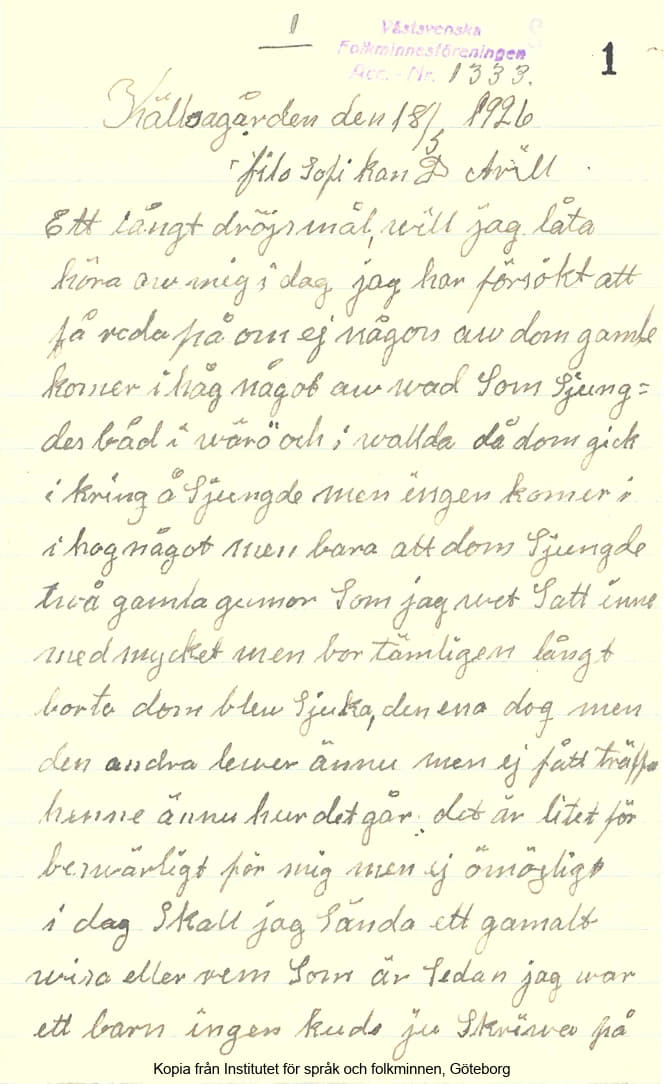 1
Västsvenska
Folkminnesföreningen
Acc. - Nr. 1333.
1
Källsagården den 18/5 1926
filosofi kan D Avill
Ett långt dröjsmål, will jag låta
höra aw mig i dag jag har försökt att
få reda på om ej någon aw dom gamle
komer i håg något aw wad Som Sjung=
des båd i wärö och i wallda då dom gick
i kring å Sjungde men ingen komer i
i hog något men bara att dom Sjungde
twå gamla gumor Som jag wet Satt inne
med mycket men bor tämligen långt
borta dom blew Sjuka, den ena dog men
den andra lewer ännu men ej fått träffa
henne ännu hur det går. det är litet för
beswärligt för mig men ej omögligt
i dag Skall jag Sända ett gamalt
wisa eller rem Som är Sedan jag war
ett barn ingen kude ju Skriwa på
Kopia från Institutet för språk och folkminnen, Göteborg